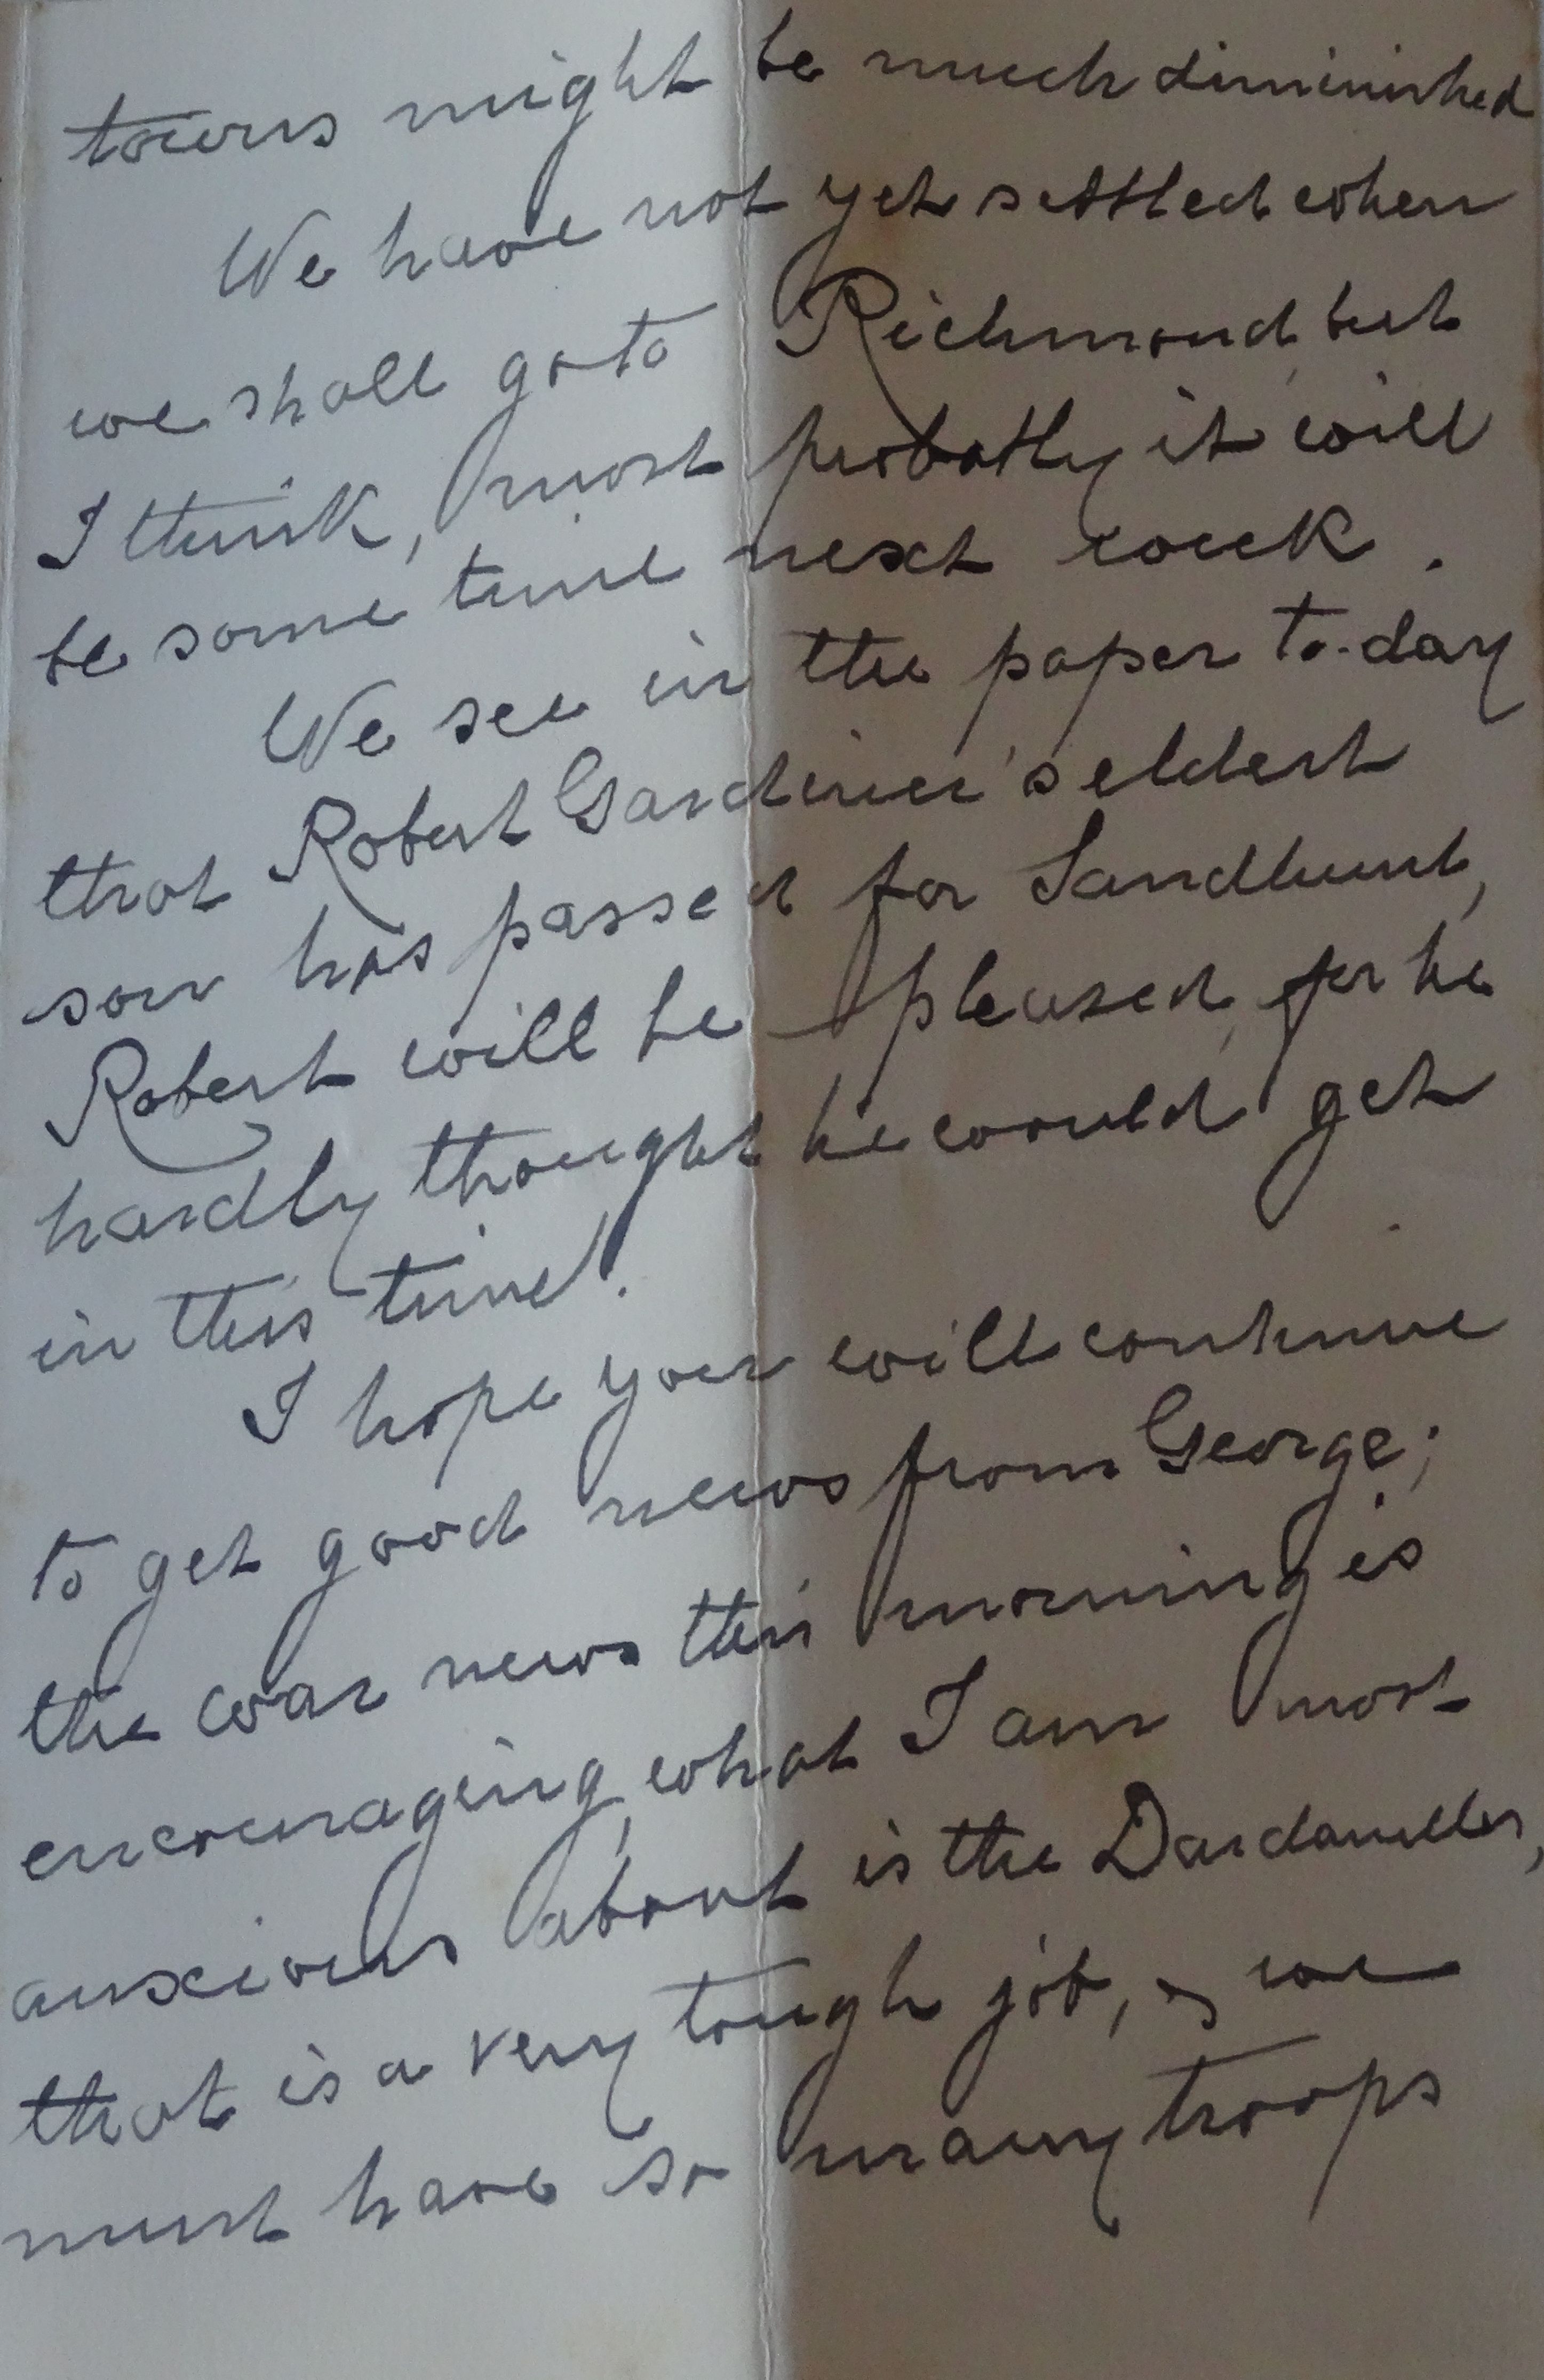 towns might be much diminished
We have not yet settled when
we shall go to Richmond, but
I think, most probably it will
be some time next week.
We see in the paper to-day
that Robert Gardiner's eldest
son has passed for Sandhurst,
Robert will be pleased, for he
hardly thought he could get
in this time.
I hope you will continue
to get good news from George;
the war news this morning is
encouraging, what I am most
anxious about is the Dardanelles,
that is a very tough job, & we
must have so many troops